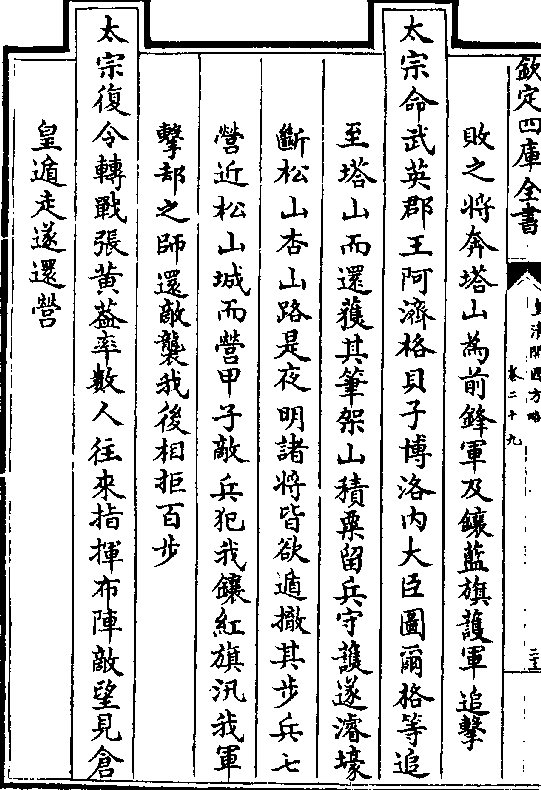 欽定四庫全書
皇清開國方略
卷二十九
敗之將奔塔山為前鋒軍及鑲藍旗護軍追擊
太宗命武英郡王阿濟格貝子博洛內大臣圖爾格等追
至塔山而還獲其筆架山積粟留兵守護遂濬壕
斷松山杏山路是夜明諸將皆欲遁撤其步兵七
營近松山城而營甲子敵兵犯我鑲紅旗汛我軍
擊却之師還敵襲我後相拒百步
太宗復令轉戰張黃葢率數人往來指揮布陣敵望見倉
皇遁走遂還營